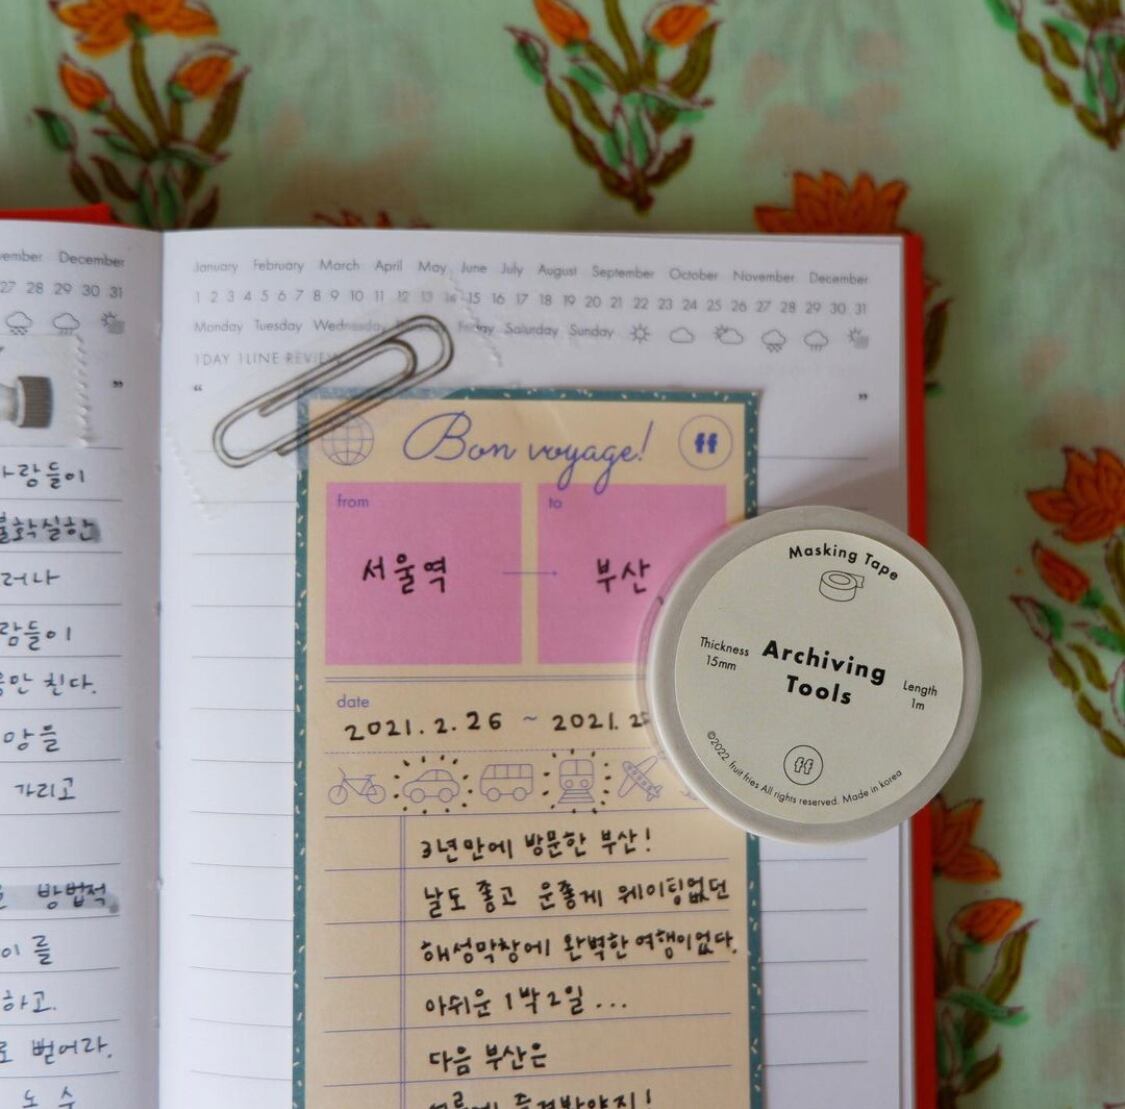 December
27 28 29 30 31
”
사람들이
불확실한
러나
람들이
만 친다.
앙들
가리고
방법적
이 를
하고.
로 벋어라.
노 수
January February March April May June July August September October November December
1 2 3 4 5 6 7 8 9 10 11 12 13 14 15 16 17 18 19 20 21 22 23 24 25 26 27 28 29 30 31
Monday Tuesday Wednesday Friday Saturday Sunday
1DAY 1LINE REVIEW
“ ”
Bon voyage! ff
from to
서울역 부산
date
2021. 2. 26 ~ 2021. 2
3년만에 방문한 부산!
날도 좋고 운좋게 웨이팅없던
해성막창에 완벽한 여행이었다.
아쉬운 1박 2일 ...
다음 부산은
Masking Tape
Thickness
15mm
Archiving
Tools
Length
1m
ff
©2022. fruit fries All rights reserved. Made in korea